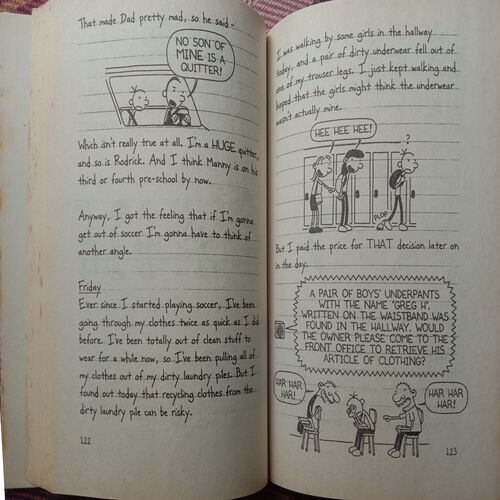 That made Dad pretty mad, so he said -
NO SON OF
MINE IS A
QUITTER!
Which isn't really true at all. I'm a HUGE quitter,
and so is Rodrick. And I think Manny is on his
third or fourth pre-school by now.
Anyway, I got the feeling that if I'm gonna
get out of soccer I'm gonna have to think of
another angle.
Friday
Ever since I started playing soccer, I've been
going through my clothes twice as quick as I did
before. I've been totally out of clean stuff to
wear for a while now, so I've been pulling all of
my clothes out of my dirty laundry piles. But I
found out today that recycling clothes from the
dirty laundry pile can be risky.
122
I was walking by some girls in the hallway
today, and a pair of dirty underwear fell out of
one of my trouser legs. I just kept walking and
hoped that the girls might think the underwear
wasn't actually mine.
HEE HEE HEE!
?
PLOP
But I paid the price for THAT decision later on
in the day.
A PAIR OF BOYS' UNDERPANTS
WITH THE NAME "GREG H".
WRITTEN ON THE WAISTBAND WAS
FOUND IN THE HALLWAY. WOULD
THE OWNER PLEASE COME TO THE
FRONT OFFICE TO RETRIEVE HIS
ARTICLE OF CLOTHING?
HAR HAR
HAR!
HAR HAR
HAR!
123